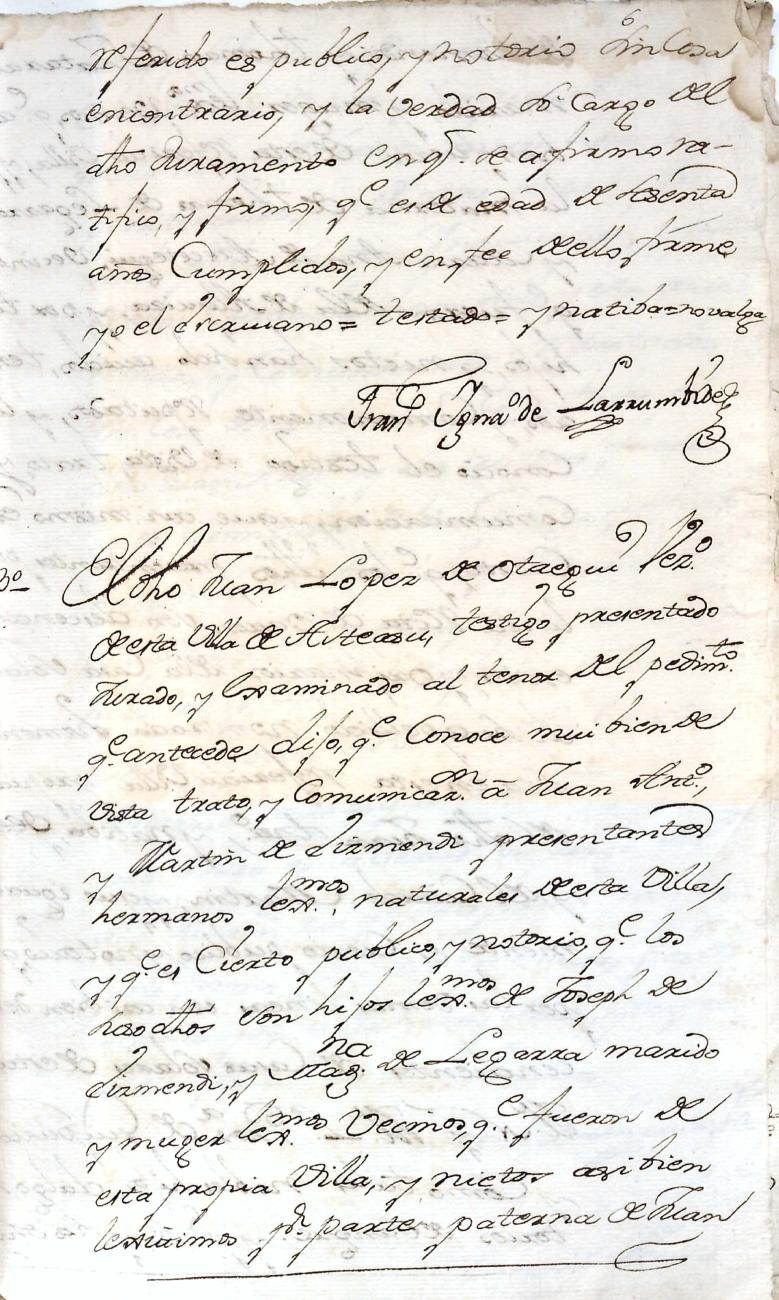 referido es publico, y notorio sin Cosa
encontrario, y la verdad so Cargo del
dho Juramento en q.e se afirmo ra-
tifico, y firmo, q.e es de edad de sesenta
años Cumplidos, y en fee dello firme
yo el escriuano = testado = y natiba = no valga
Fran.co Igna.o de Larrumbide
3º
El dho Juan Lopez de Otaegui Vez.o
de esta Villa de Asteasu, testigo presentado
Jurado, y Examinado al tenor del pedim.to
q.e antecede dijo, q.e Conoce mui bien de
vista trato, y Comunicaz.on a Juan Ant.o,
y Martin de Lizmendi presentantes
hermanos lex.mos, naturales de esta Villa,
y q.e es Cierto publico, y notorio, q.e los
suso dhos son hijos lex.mos de Joseph de
Lizmendi, y Mag.na de Legarra marido
y muger lex.mos Vecinos, q.e fueron de
esta propia Villa, y nietos asi bien
lexitimos p.r parte paterna de Juan